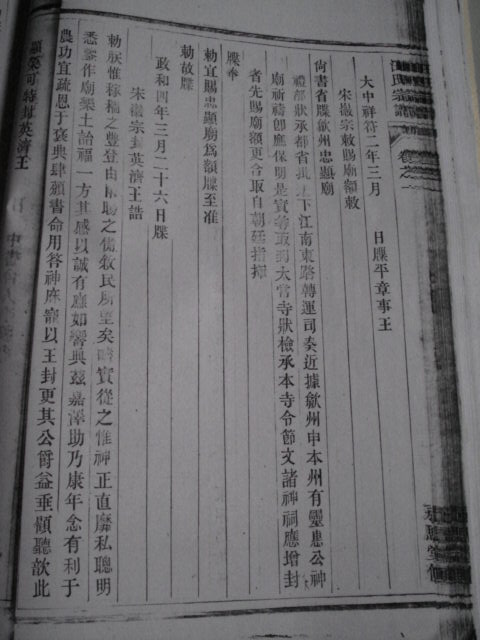 汪氏宗譜
卷之
大中祥符二年三月 日牒平章事王
宋徽宗敕賜廟額敕
尚書省牒歙州忠顯廟
禮部狀承都省批送下江南東路轉運司奏近據歙州申本州有靈惠公神
廟祈禱卽應保明是實等取到太常寺狀檢承本寺令節文諸神祠應增封
者先賜廟額更合取自朝廷指揮
牒奉
勅宜賜忠顯廟爲額牒至准
勅故牒
政和四年三月二十六日牒
宋徽宗封英濟王誥
勅朕惟稼穡之豐登由 之 敘民所至矣 實從之惟神正直靡私聰明
悉鑒作廟樂土詒福一方其感以誠有應如響典茲嘉澤助乃康年念有利于
農功宜疏恩于褒典肆頒書命用答神庥寵以王封更其公爵益垂顧聽歆此
顯榮可特封英濟王